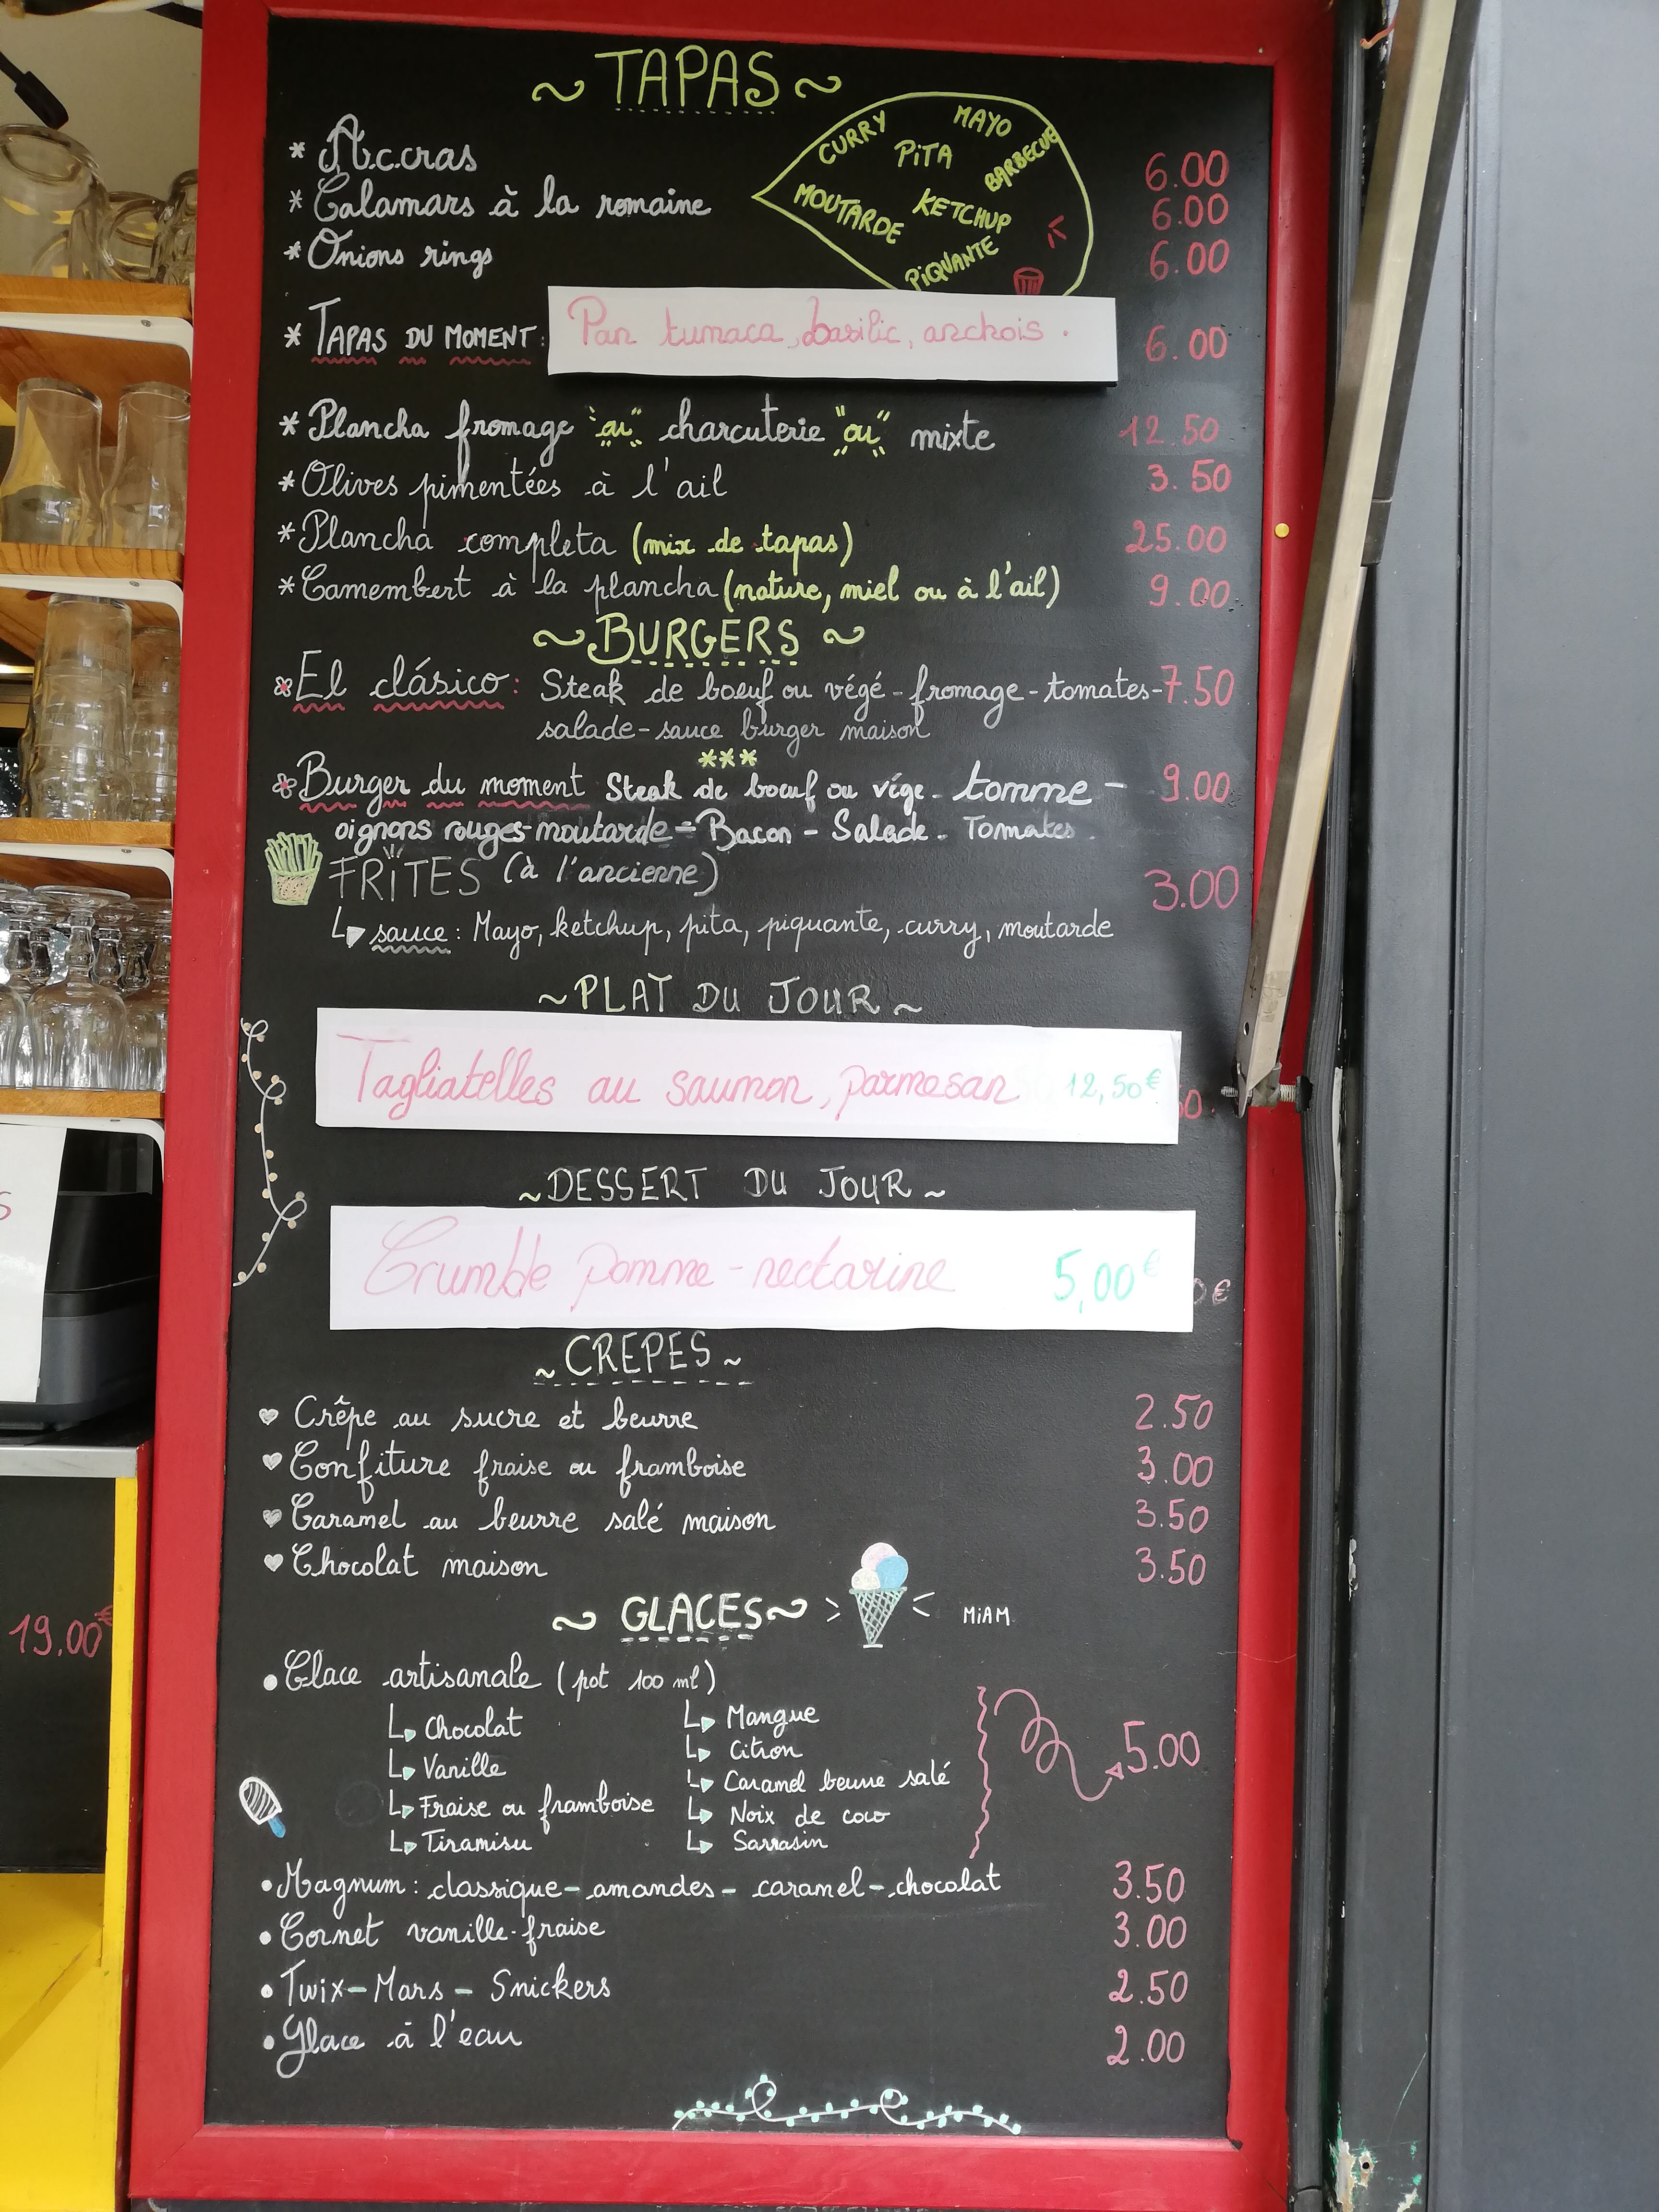 ~ TAPAS ~
* Accras 6.00
* Calamars à la romaine 6.00
* Onions rings 6.00
CURRY MAYO
PiTA BARBECUE
MOUTARDE KETCHUP
PiQUANTE
* TAPAS DU MOMENT: Pan tumaca, basilic, anchois. 6.00
* Plancha fromage "ou" charcuterie "ou" mixte 12.50
* Olives pimentées à l'ail 3.50
* Plancha completa (mix de tapas) 25.00
* Camembert à la plancha (nature, miel ou à l'ail) 9.00
~ BURGERS ~
El clásico: Steak de boeuf ou végé - fromage - tomates - 7.50
salade - sauce burger maison
***
Burger du moment Steak de boeuf ou végé - tomme - 9.00
oignons rouges - moutarde - Bacon - Salade - Tomates.
FRiTES (à l'ancienne) 3.00
sauce: Mayo, ketchup, pita, piquante, curry, moutarde
~ PLAT DU JOUR ~
Tagliatelles au saumon, parmesan 12,50€
~ DESSERT DU JOUR ~
Crumble pomme - nectarine 5,00€
0€
~ CREPES ~
♥ Crêpe au sucre et beurre 2.50
♥ Confiture fraise ou framboise 3.00
♥ Caramel au beurre salé maison 3.50
♥ Chocolat maison 3.50
~ GLACES ~ > < MiAM
• Glace artisanale (pot 100 ml) 5.00
Chocolat
Vanille
Fraise ou framboise
Tiramisu
Mangue
Citron
Caramel beurre salé
Noix de coco
Sarrasin
• Magnum: classique - amandes - caramel - chocolat 3.50
• Cornet vanille-fraise 3.00
• Twix - Mars - Snickers 2.50
• Glace à l'eau 2.00
19,00€